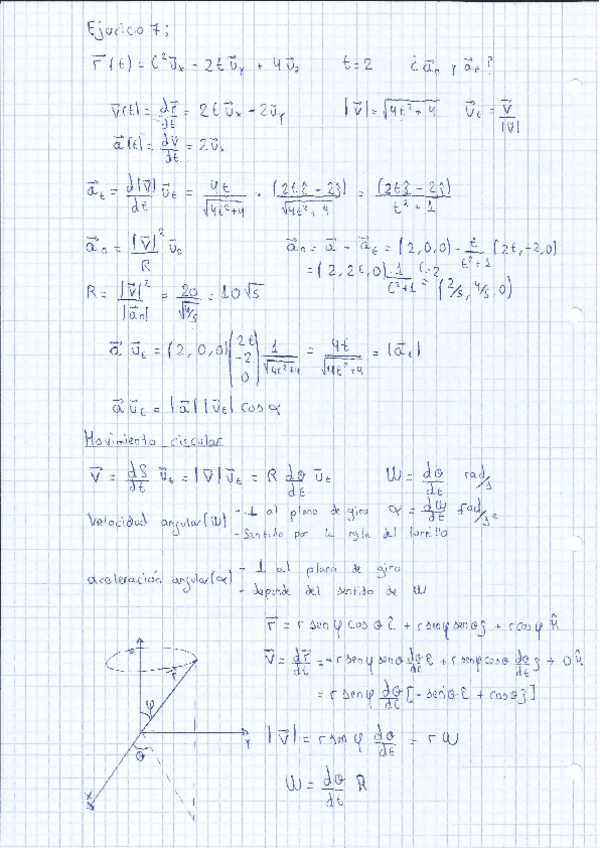 Ejercicio 7:
r⃗(t) = t² u⃗ₓ - 2t u⃗ᵧ + 4 u⃗₂   t = 2   ¿ a⃗ₙ y a⃗ₜ ?
v⃗(t) = dr⃗/dt = 2t u⃗ₓ - 2 u⃗ᵧ   |v⃗| = √(4t²+4)   u⃗ₜ = v⃗/|v⃗|
a⃗(t) = dv⃗/dt = 2 u⃗ₓ
a⃗ₜ = d|v⃗|/dt u⃗ₜ = 4t/√(4t²+4) · (2tî - 2ĵ)/√(4t²+4) = (2tî - 2ĵ)/(t²+1)
a⃗ₙ = |v⃗|²/R u⃗ₙ   a⃗ₙ = a⃗ - a⃗ₜ = (2,0,0) - t/(t²+1) (2t,-2,0)
= (2, 2t, 0) · 1/(t²+1) = (2/5, 4/5, 0)
R = |v⃗|²/|a⃗ₙ| = 20/√(4/5) = 10√5
a⃗ u⃗ₜ = (2,0,0) (2t -2 0) 1/√(4t²+4) = 4t/√(4t²+4) = |a⃗ₜ|
a⃗ u⃗ₜ = |a⃗| |u⃗ₜ| cos α
Movimiento circular
v⃗ = dS/dt u⃗ₜ = |v⃗| u⃗ₜ = R dθ/dt u⃗ₜ   ω = dθ/dt rad/s
Velocidad angular (ω) - ⊥ al plano de giro   α = dω/dt rad/s²
- Sentido por la regla del tornillo
aceleración angular (α) - ⊥ al plano de giro
- depende del sentido de ω
r⃗ = r senφ cosθ î + r senφ senθ ĵ + r cosφ k̂
v⃗ = dr⃗/dt = -r senφ senθ dθ/dt î + r senφ cosθ dθ/dt ĵ + 0 k̂
= r senφ dθ/dt [-senθ î + cosθ ĵ]
|v⃗| = r senφ dθ/dt = r ω
ω = dθ/dt k̂
z
r
φ
θ
y
x